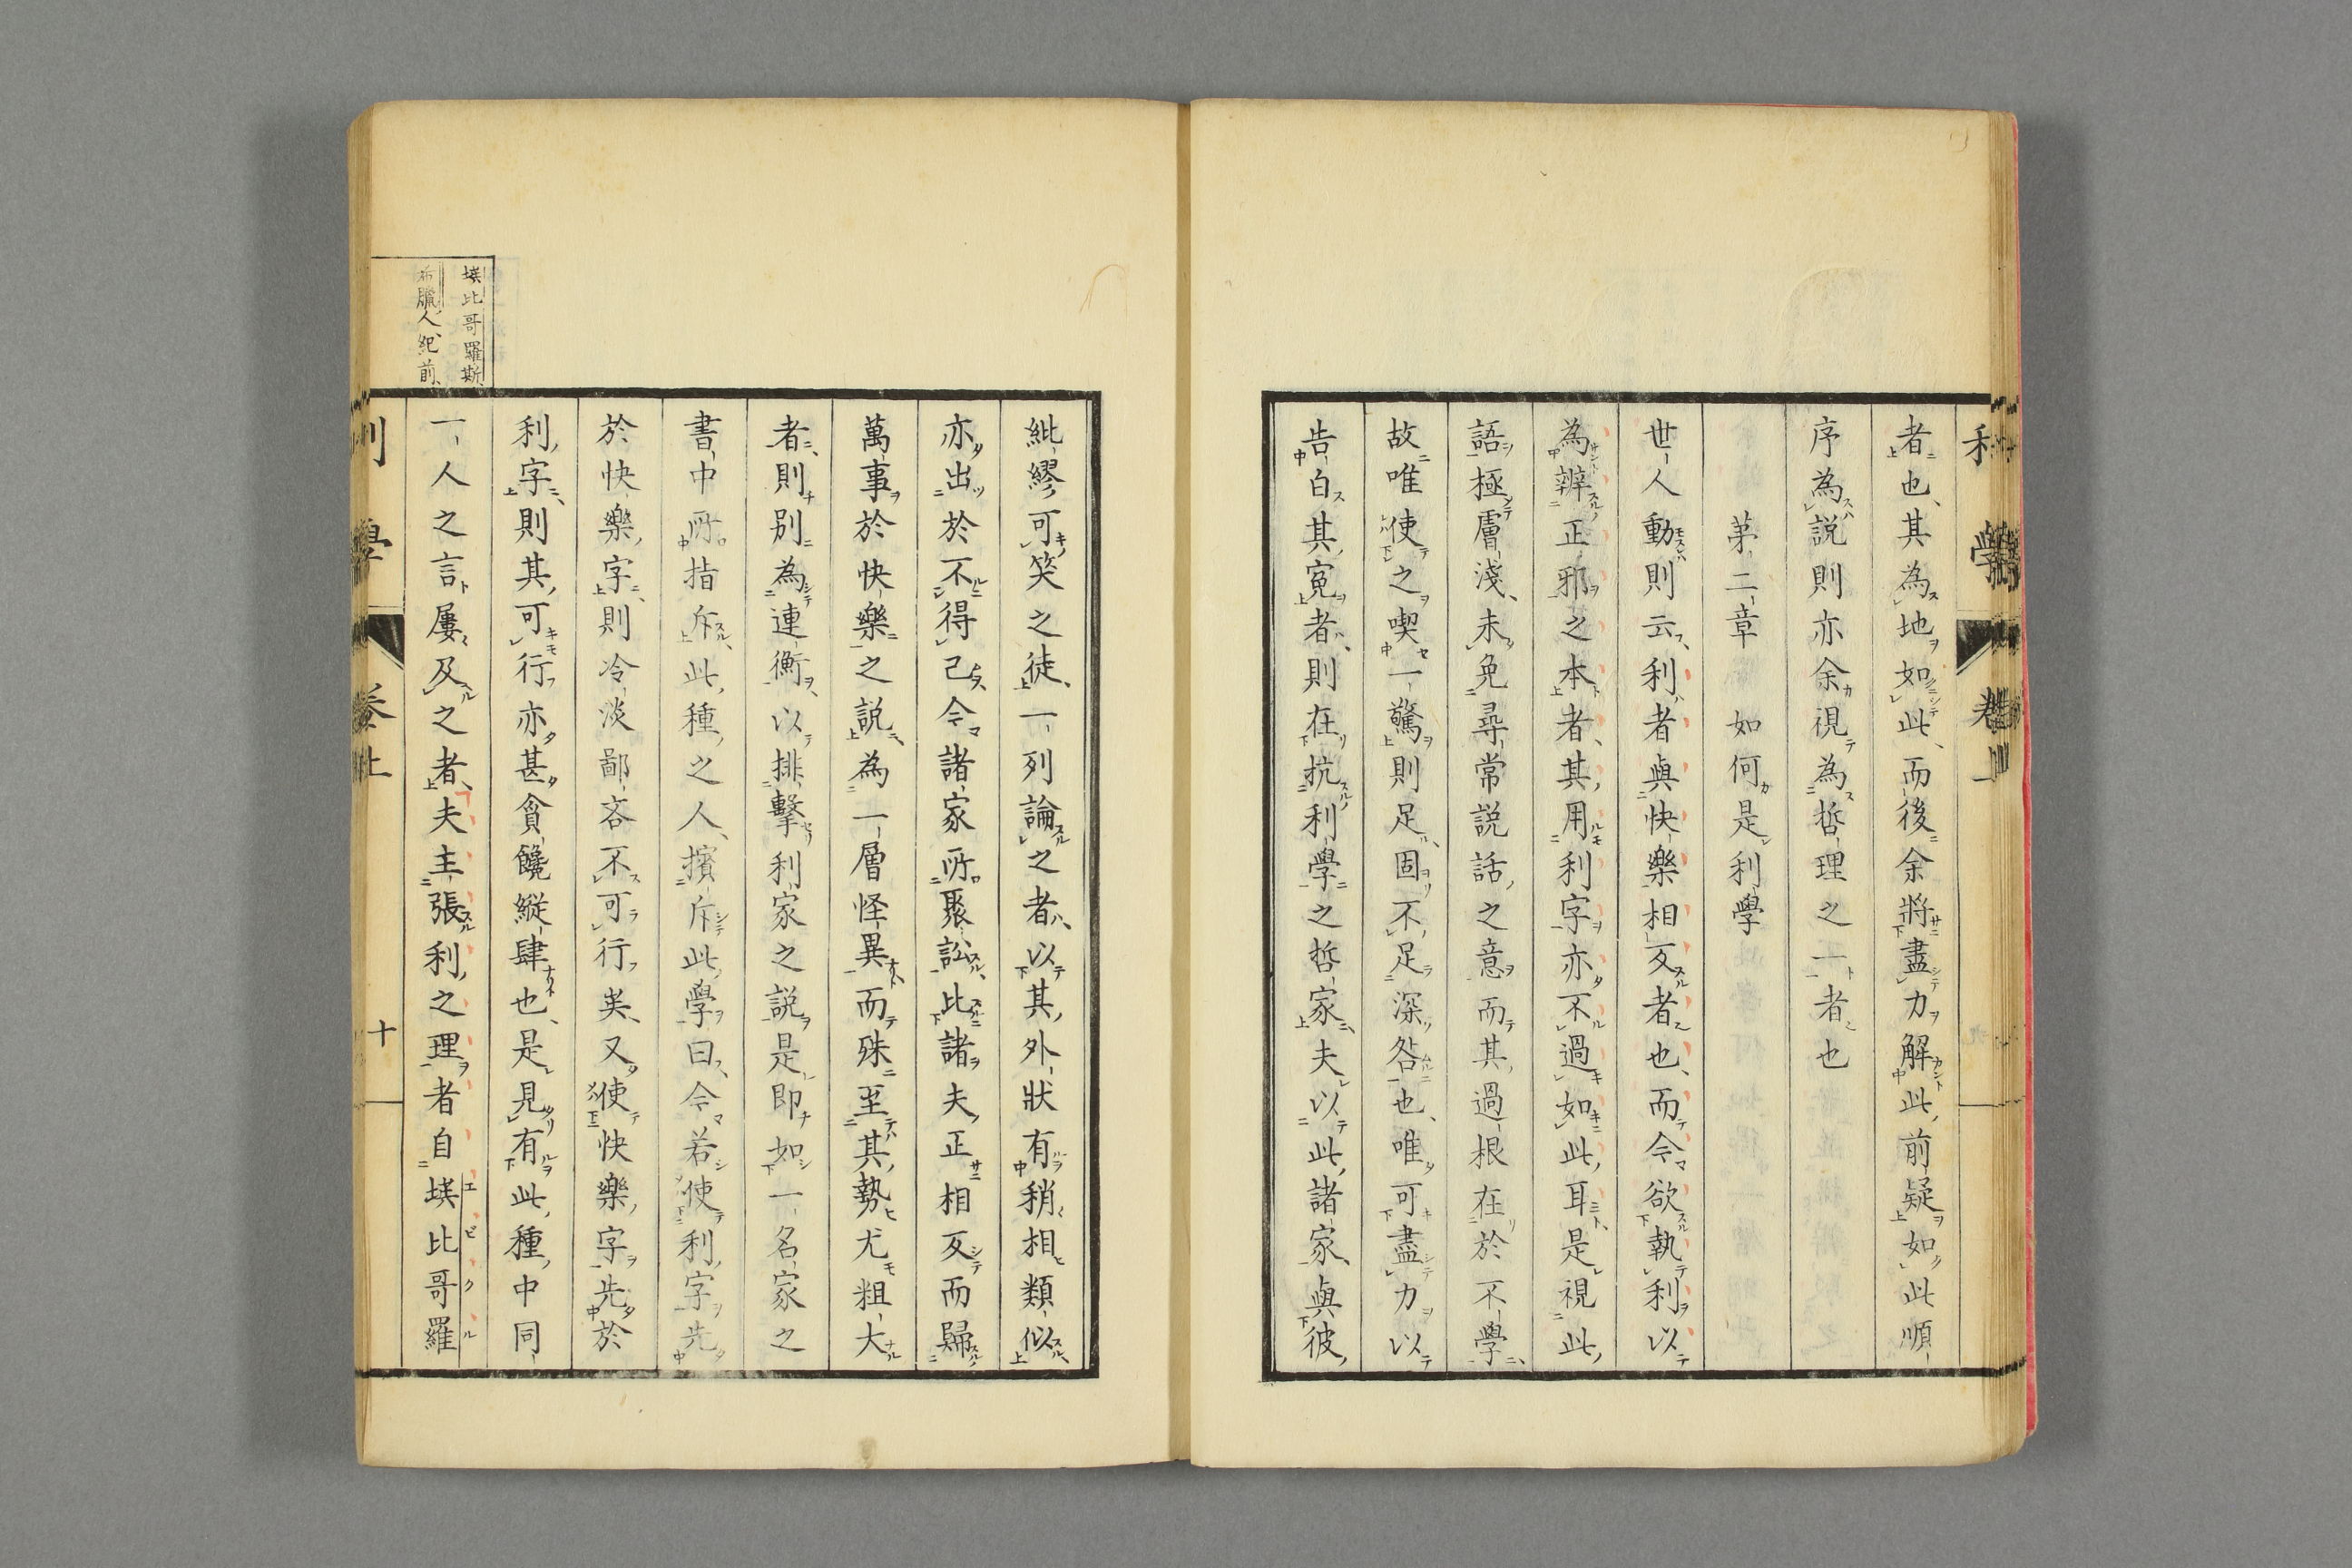 者也、其為地如此、而後余將盡力解此前疑如此順
序為説則亦余視為哲理之一者也
第二章　如何是利學
世人動則云利者與快樂相反者也、而今欲執利以
為辨正邪之本者、其用利字亦不過如此耳是視此
語極膚淺、未免尋常説話之意而其過根在於不學
故唯使之喫一驚則足固不足深咎也、唯可盡力以
告白其寃者、則在抗利學之哲家夫以此諸家、與彼
紕繆可笑之徒、一列論之者、以其外狀有稍相類似
亦出於不得已今諸家所聚訟此諸夫正相反而歸
萬事於快樂之説為一層怪異而殊至其勢尤粗大
者、則別為連衡、以排擊利家之説是即如一名家之
書中所指斥此種之人、擯斥此學曰、今若使利字先
於快樂字、則冷淡鄙吝不可行矣、又使快樂字先於
利字、則其可行亦甚貪饞縱肆也、是見有此種中同
一人之言屢及之者、夫主張利之理者自埃比哥羅
エビクル
埃比哥羅斯、
希臘人、紀前、
利學　卷上　十